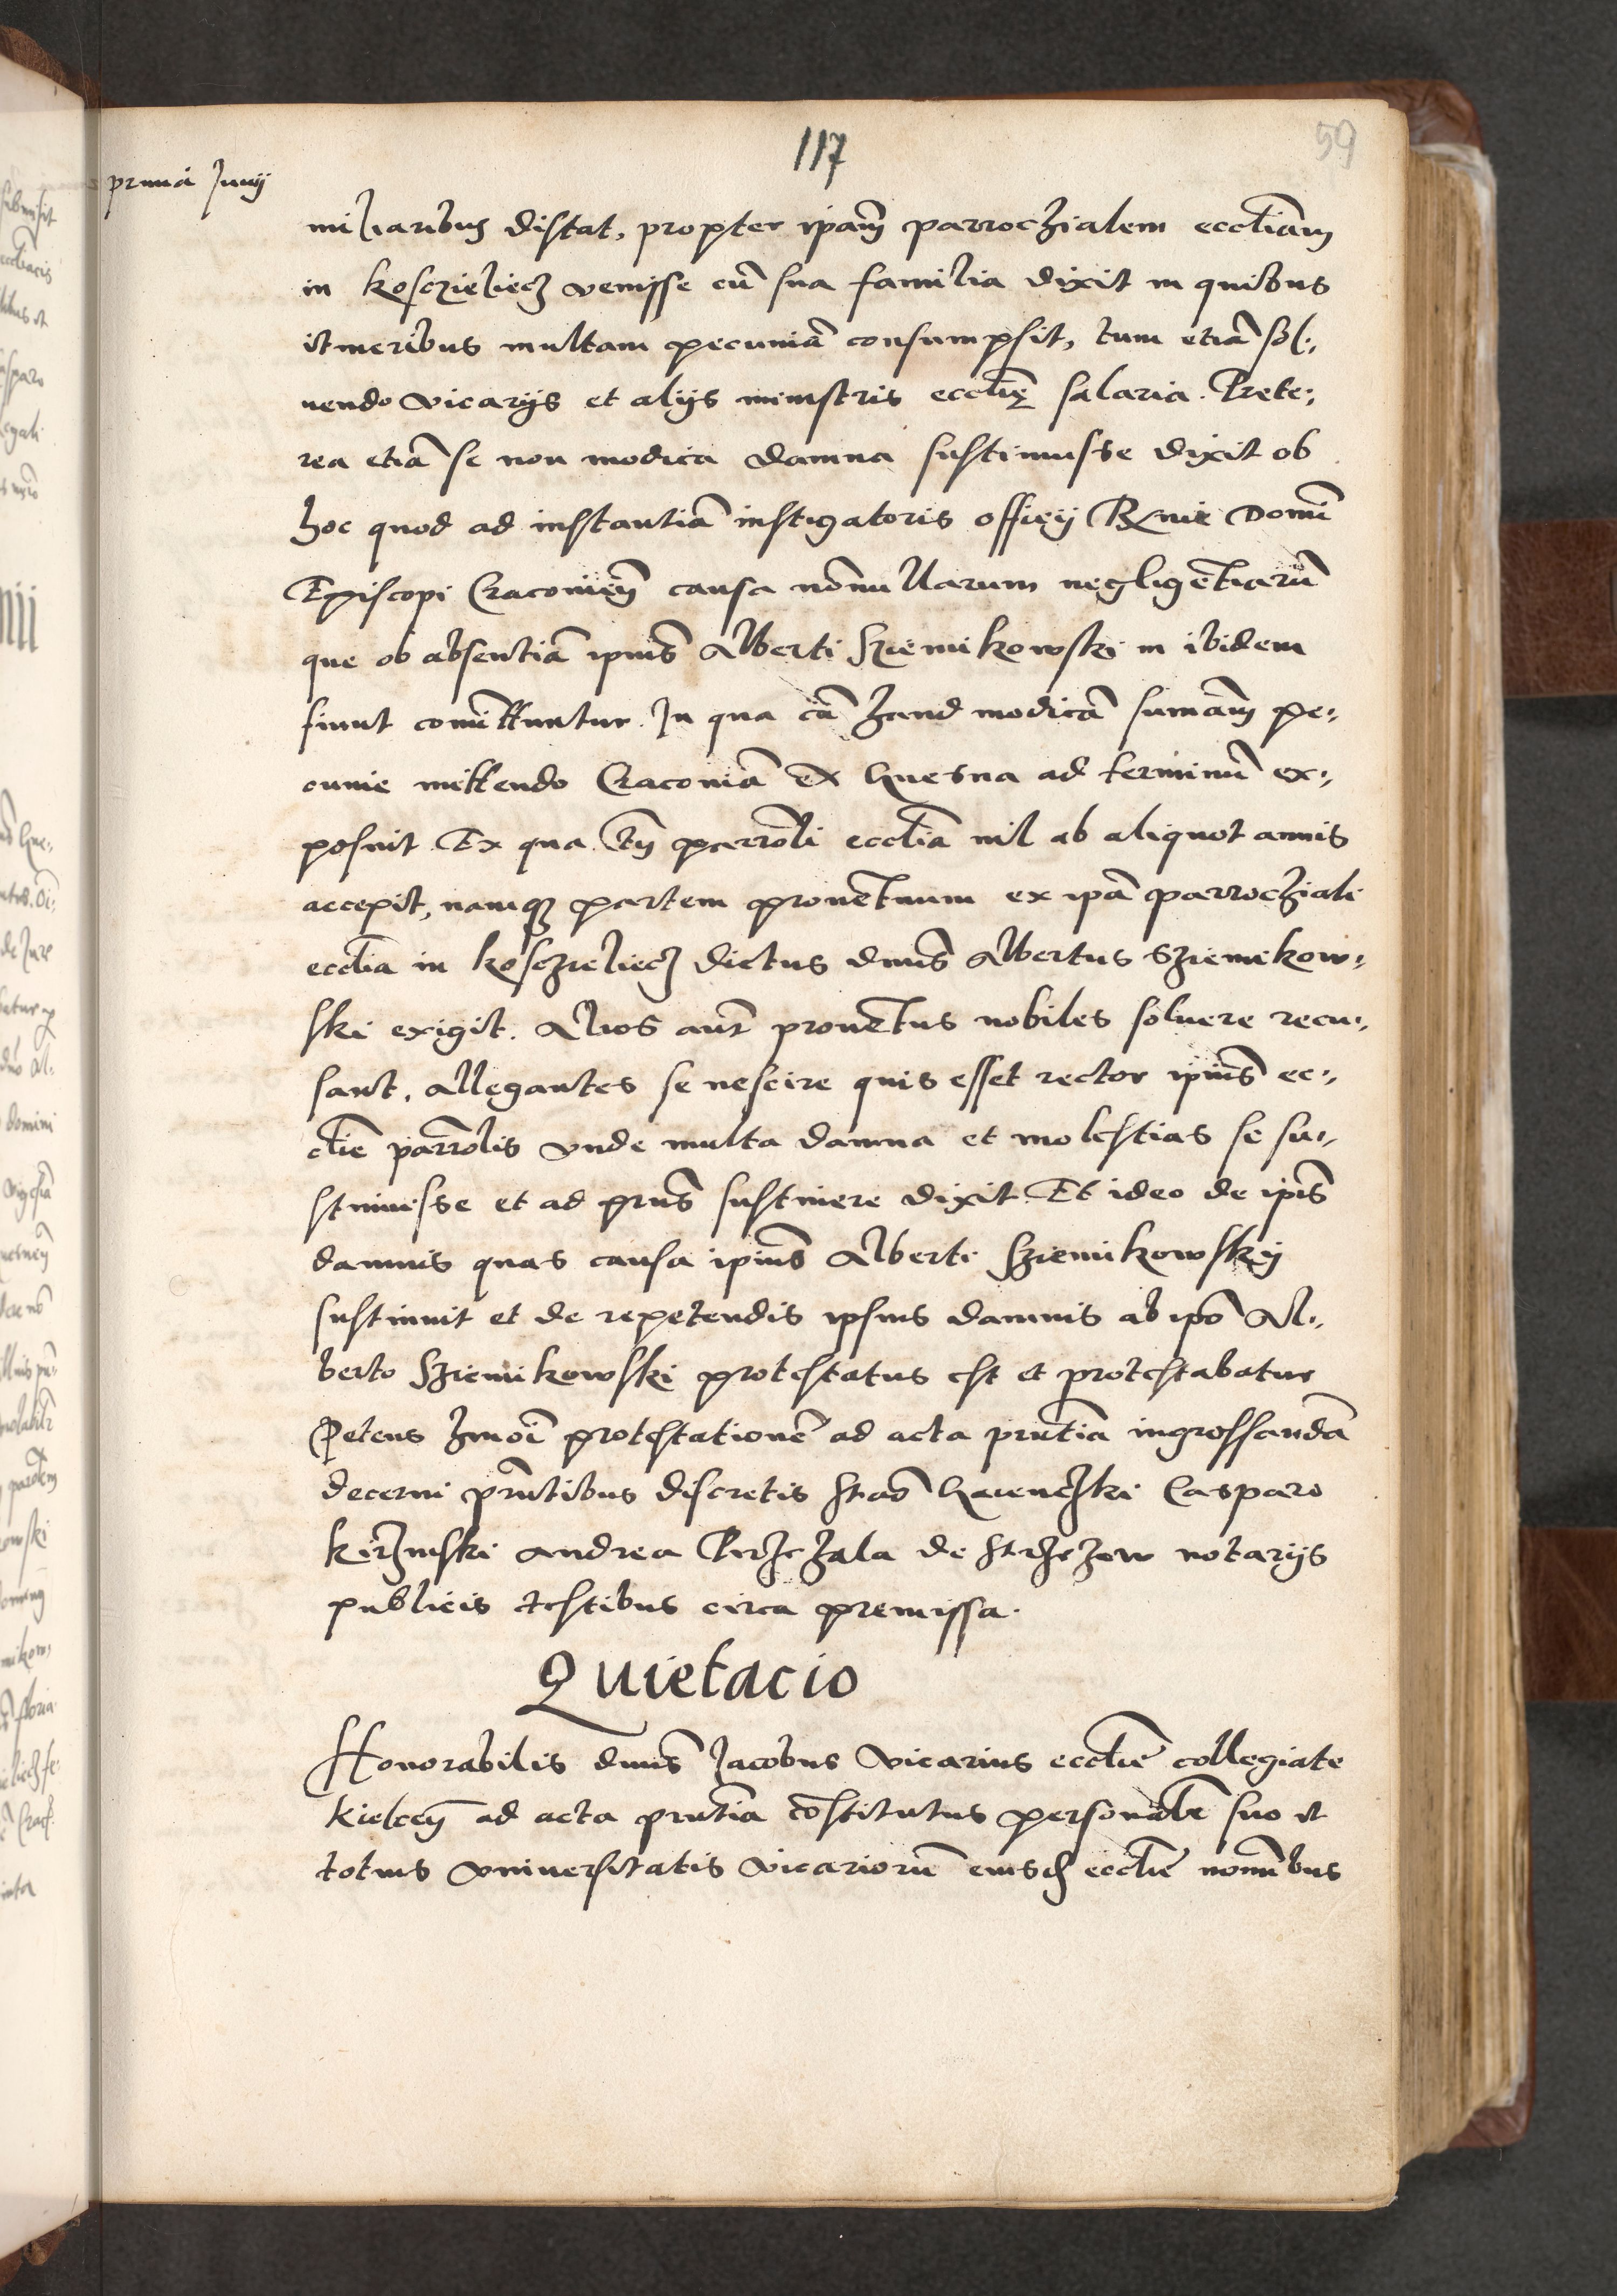 117
59
prima Junij
miliaribus distat, propter ipam̄ parrochialem eccliam̄
in Koscżieliecz venisse cū sua familia dixit in quibus
itineribus multam pecuniā consumpsit, tum etiā sol-
uendo vicarijs et alijs ministris eccliȩ salaria. Prete-
rea etiā se non modica damna sustinuisse dixit ob
hoc quod ad instantiā instigatoris officÿ Rmi Domī
Episcopi Cracovieñ causa nōnullarum negligētiarū
que ob absentiā ipiūs Alberti Sziemikowski in ibidem
fiunt comīttuntur. In qua cā haud modicā sumām pe-
cunie mittendo Cracoviā ex Gnesna ad terminū ex-
posuit. Ex qua tn̄ parroli ecclia nil ab aliquot annis
accepit, namq₃ partem prouētuum ex ipā parrochiali
ecclia in Kosczieliecz dictus dnūs Albertus Sziemikow-
ski exigit. Alios aut̄ prouētus nobiles soluere recu-
sant, allegantes se nescire quis esset rector ipiūs ec-
clie parrolis vnde multa damna et molestias se su-
stinuisse et ad prns̄ sustinere dixit. Et ideo de ipīs
damnis quas causa ipiūs Alberti Sziemikowskÿ
sustinuit et de repetendis ipsius damnis ab ipō Al-
berto Sziemikowski protestatus est et protestabatur
Petens hmōi protestationē ad acta prn̄tia ingrossandā
decerni prn̄tibus discretis Stāo Casparo
Andrea de notarijs
publicis testibus circa premissa.
Quietacio
Honorabilis dnūs Jacobus vicarius ecclie collegiate
Kielceñ ad acta prn̄tia cōstitutus personalr̄ suo et
totius vniuersitatis vicariorū eiusd ecclie nomībus